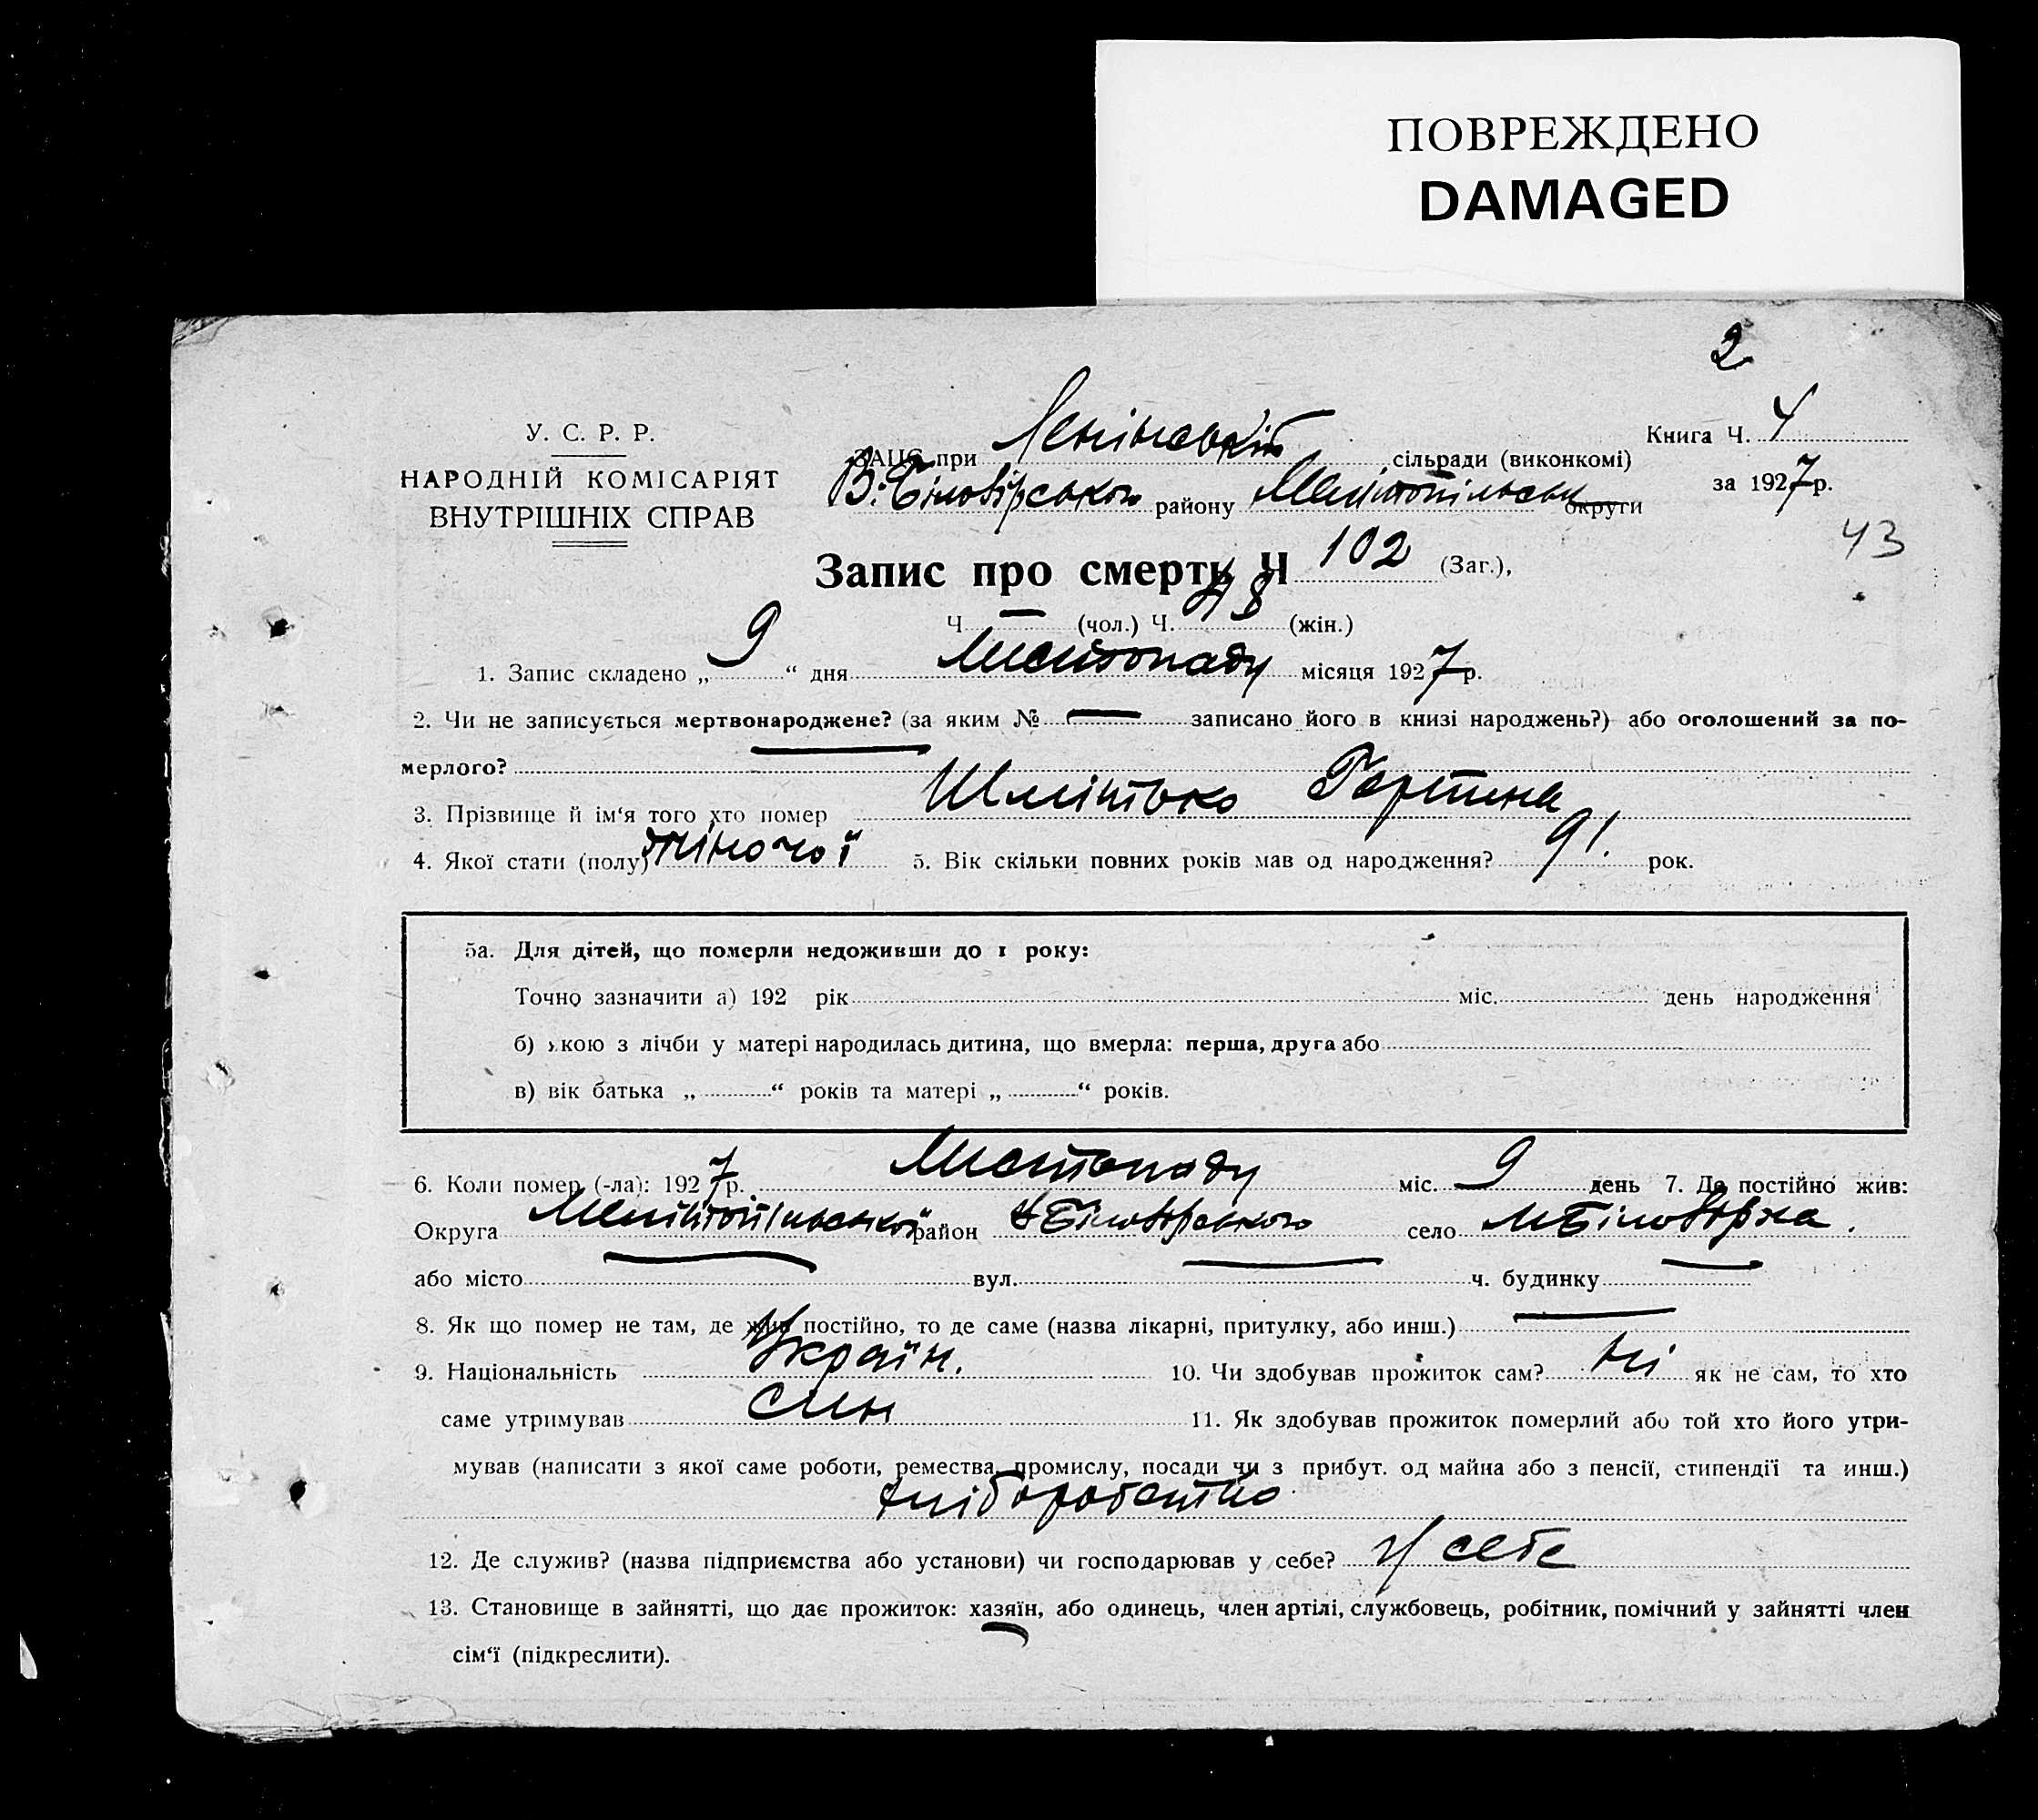 ПОВРЕЖДЕНО
DAMAGED
2
У. С. Р. Р.
НАРОДНІЙ КОМІСАРІЯТ
ВНУТРІШНІХ СПРАВ
ЗАЦС при Ленінській сільради (виконкомі)
В. Білозірського району Мелітопільськ округи
Книга Ч. 4
за 1927 р.
43
Запис про смерть Ч 102 (Заг.),
Ч — (чол.) Ч. 48 (жін.)
1. Запис складено „ 9 “ дня Листопаду місяця 1927 р.
2. Чи не записується мертвонароджене? (за яким № — записано його в книзі народжень?) або оголошений за по-
мерлого?
3. Прізвище й ім‘я того хто помер Шлінько
4. Якої стати (полу) жіночої 5. Вік скільки повних років мав од народження? 91. рок.
5а. Для дітей, що померли недоживши до 1 року:
Точно зазначити а) 192 рік міс. день народження
б) якою з лічби у матері народилась дитина, що вмерла: перша, друга або
в) вік батька „ “ років та матері „ “ років.
6. Коли помер (-ла): 1927 р. Листопаду міс. 9 день 7. Де постійно жив:
Округа Мелітопільської район В Білозірського село МБілозірка.
або місто вул. ч. будинку
8. Як що помер не там, де жив постійно, то де саме (назва лікарні, притулку, або инш.)
9. Національність Україн. 10. Чи здобував прожиток сам? ні як не сам, то хто
саме утримував син 11. Як здобував прожиток померлий або той хто його утри-
мував (написати з якої саме роботи, ремества, промислу, посади чи з прибут. од майна або з пенсії, стипендії та инш.)
хліборобство
12. Де служив? (назва підприємства або установи) чи господарював у себе? у себе
13. Становище в зайнятті, що дає прожиток: хазяїн, або одинець, член артілі, службовець, робітник, помічний у зайнятті член
сім‘ї (підкреслити).